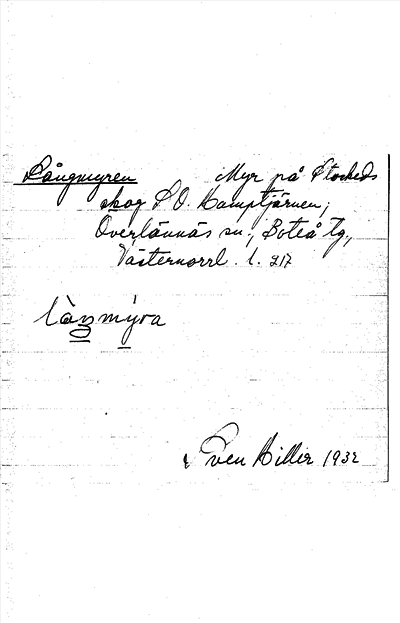 Långmyren Myr på Stockeds
skog S O. Kamptjärnen;
Överlännäs sn., Boteå tg.,
Västernorrl. l. 217
låŋmýra
Sven Hiller 1932